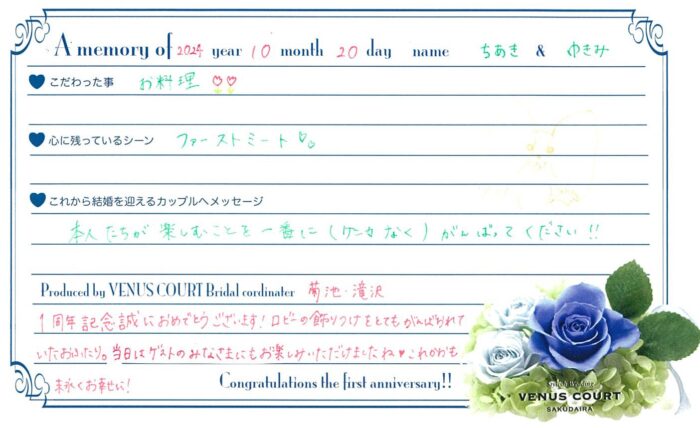 A memory of 2024 year 10 month 20 day name ちあき & ゆきみ
こだわった事 お料理
心に残っているシーン ファーストミート
これから結婚を迎えるカップルへメッセージ
本人たちが楽しむことを一番に(ケンカなく)がんばってください!!
Produced by VENUS COURT Bridal cordinater 菊池・滝沢
1周年記念誠におめでとうございます!ロビーの飾りつけをとてもがんばられて
いたおふたり。当日はゲストのみなさまにもお楽しみいただけましたね♥これからも
末永くお幸せに!
Congratulations the first anniversary!!
VENUS COURT
SAKUDAIRA